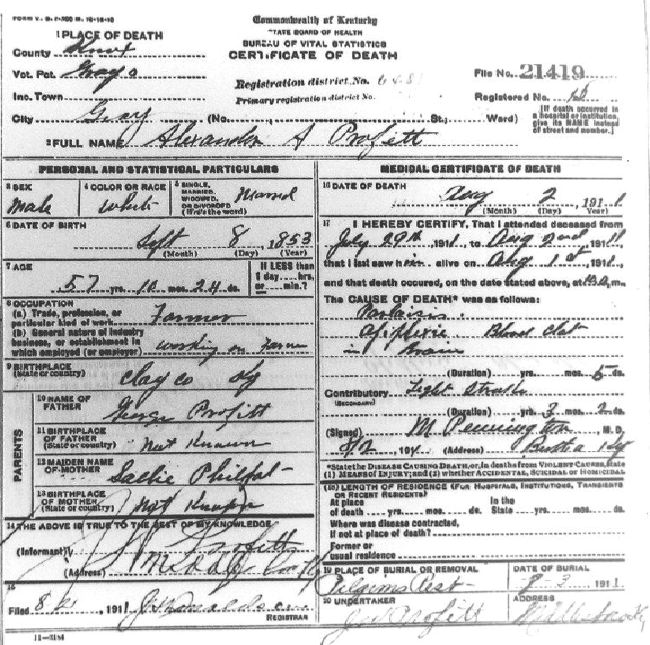 Commonwealth of Kentucky
STATE BOARD OF HEALTH
BUREAU OF VITAL STATISTICS
CERTIFICATE OF DEATH
1 PLACE OF DEATH
County Knox
Vot. Pct. Grays
Inc. Town
City Gray (No. St.; Ward)
Registration district No.
Primary registration district No.
File No. 21419
Registered No.
[If death occurred in a hospital or institution, give its NAME instead of street and number.]
2 FULL NAME Alexander A Profitt
PERSONAL AND STATISTICAL PARTICULARS
3 SEX Male
4 COLOR OR RACE White
5 SINGLE, MARRIED, WIDOWED, OR DIVORCED (Write the word) Married
6 DATE OF BIRTH Sept 8, 1853
(Month) (Day) (Year)
7 AGE 57 yrs. 10 mos. 24 ds.
If LESS than 1 day, hrs. or min.?
8 OCCUPATION
(a) Trade, profession, or particular kind of work Farmer
(b) General nature of industry business, or establishment in which employed (or employer) working on Farm
9 BIRTHPLACE (State or country) Clay co Ky
PARENTS
10 NAME OF FATHER George Profitt
11 BIRTHPLACE OF FATHER (State or country) Not Known
12 MAIDEN NAME OF MOTHER Sallie Philpot
13 BIRTHPLACE OF MOTHER (State or country) Not Known
14 THE ABOVE IS TRUE TO THE BEST OF MY KNOWLEDGE
(Informant) Profitt
(Address)
15
Filed 1911 REGISTRAR
11-3184
MEDICAL CERTIFICATE OF DEATH
16 DATE OF DEATH Aug 2, 1911
(Month) (Day) (Year)
17 I HEREBY CERTIFY, That I attended deceased from
July 29th, 1911, to Aug 2nd, 1911,
that I last saw him alive on Aug 1st, 1911,
and that death occured, on the date stated above, at m.
The CAUSE OF DEATH* was as follows:
Blood Clot
in Brain
(Duration) yrs. mos. 5 ds.
Contributory
(SECONDARY)
(Duration) yrs. 3 mos. 2 ds.
(Signed) M Pennington, M. D.
1911 (Address) Ky
*State the DISEASE CAUSING DEATH, or, in deaths from VIOLENT CAUSES, state (1) MEANS OF INJURY; and (2) whether ACCIDENTAL, SUICIDAL OR HOMICIDAL
18 LENGTH OF RESIDENCE (FOR HOSPITALS, INSTITUTIONS, TRANSIENTS OR RECENT RESIDENTS)
At place of death yrs. mos. ds. In the State yrs. mos. ds.
Where was disease contracted, If not at place of death?
Former or usual residence
19 PLACE OF BURIAL OR REMOVAL Pilgrims Rest
DATE OF BURIAL 8 3 1911
20 UNDERTAKER Profitt
ADDRESS